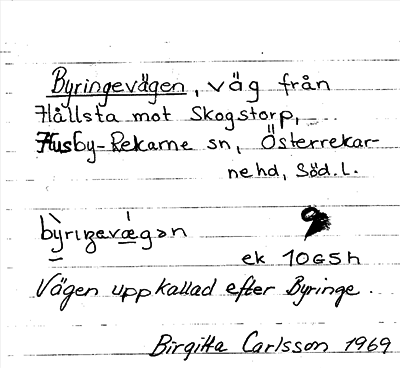 Byringevägen, väg från
Hållsta mot Skogstorp,
Husby-Rekarne sn, Österrekar-
nehd, Söd.l.
bỳ̖riŋevǽ̖gən
ek 10G5h
Vägen uppkallad efter Byringe.
Birgitta Carlsson 1969